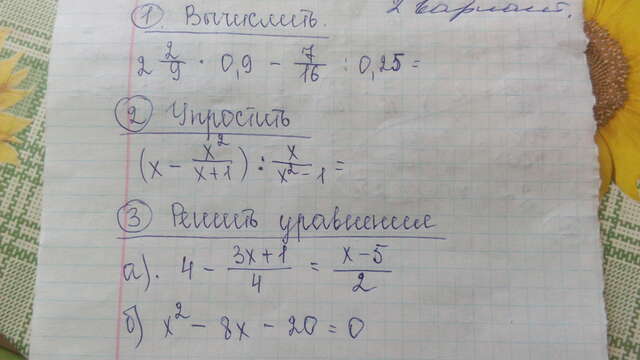 2 вариант.
1 Вычислить.
2 2/9 · 0,9 - 7/16 : 0,25 =
2 Упростить
(x - x²/(x+1)) : x/(x²-1) =
3 Решить уравнения
а). 4 - (3x+1)/4 = (x-5)/2
б) x² - 8x - 20 = 0